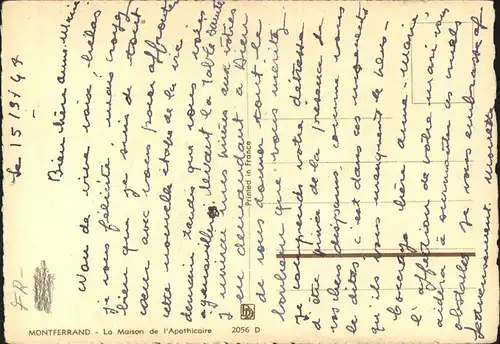 Le 15/9/47
Bien chère Anne-Marie
de vive voix hélas
je vous félicite mais croyez
bien que je suis de tout
cœur avec vous pour affronter
cette nouvelle étape de la vie
demain tandis que vous vous
agenouillerez devant la Table Sainte
j'unirai mes prières aux vôtres
en demandant à Dieu
de vous donner tout le
bonheur que vous méritez
je comprends votre détresse
d'être privée de la présence de
vos chers disparus, comme vous
le dites c'est dans ces moments
qu'ils vous manquent le plus
Courage chère Anne-Marie
l'affection de votre mari vous
aidera à surmonter ces
obstacles je vous embrasse
affectueusement
FR-
MONTFERRAND - La Maison de l'Apothicaire 2056 D
Printed in France